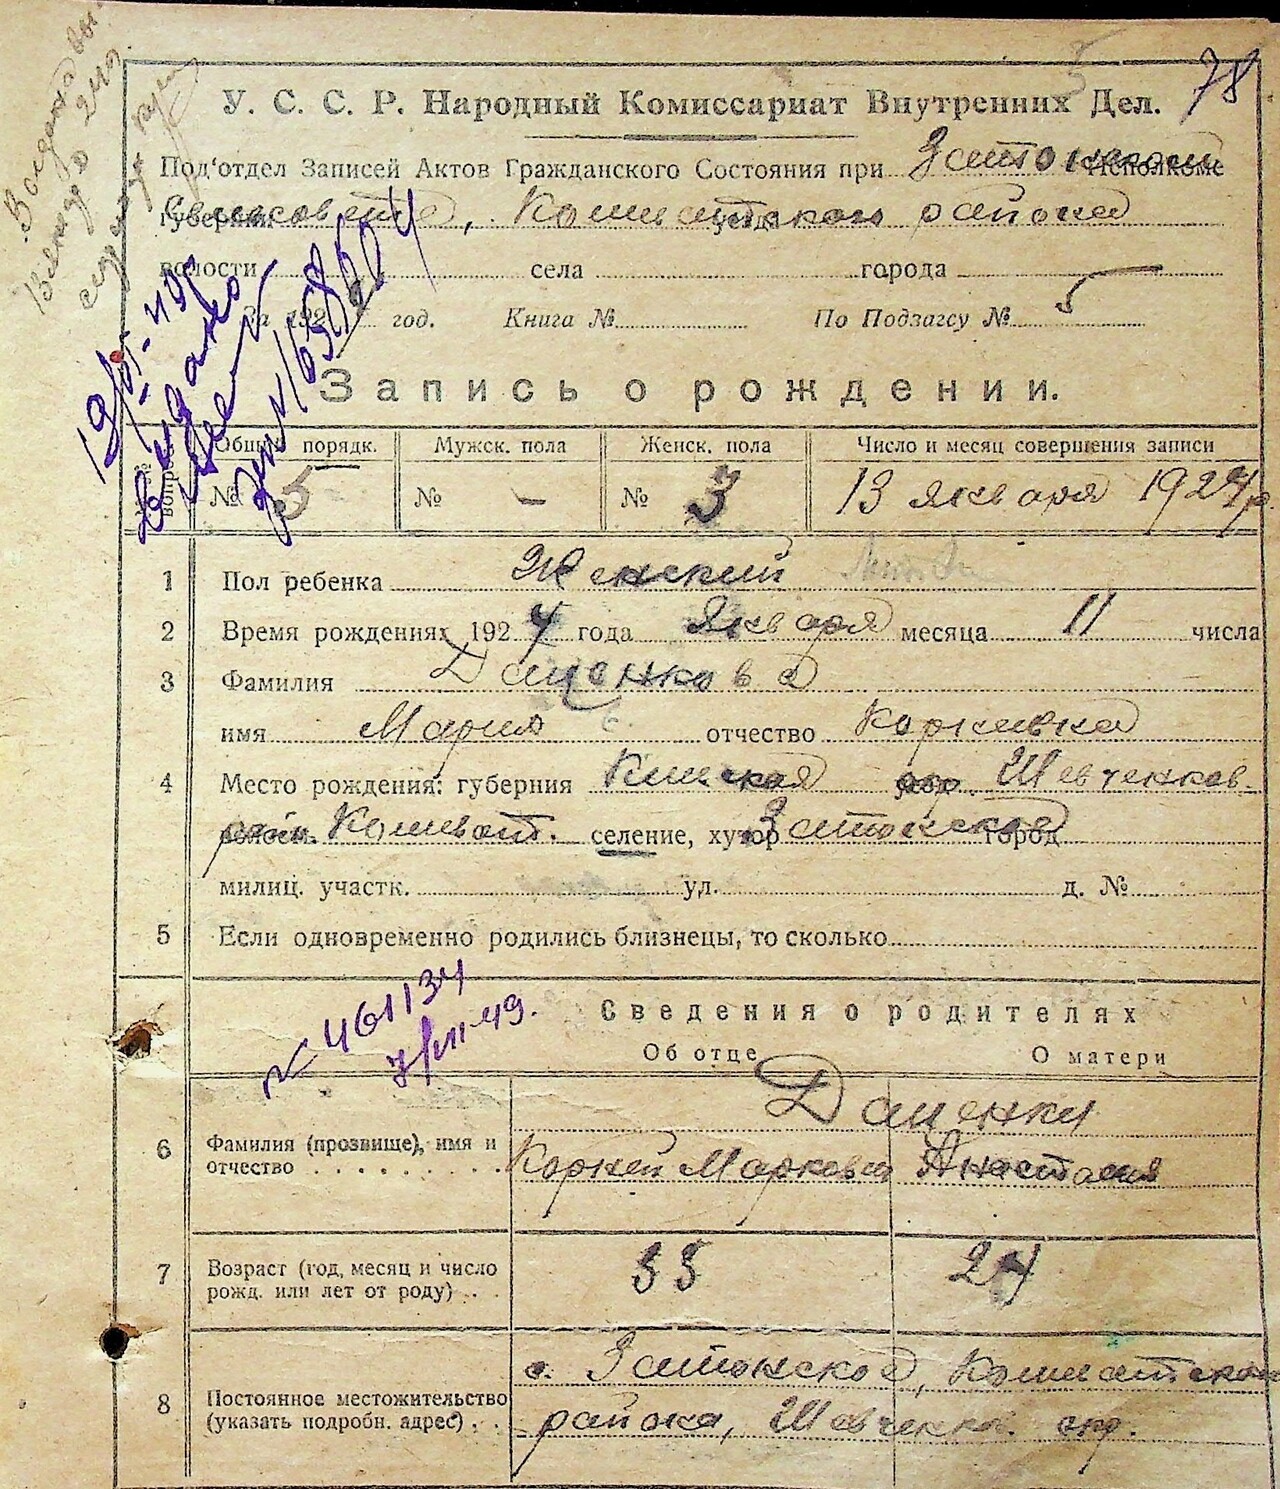 78
У. С. С. Р. Народный Комиссариат Внутренних Дел.
Под'отдел Записей Актов Гражданского Состояния при Затонском Исполкоме
губернии уезда района
волости села города
За 192 год. Книга № По Подзагсу № 5
Запись о рождении.
Общий порядк. Мужск. пола Женск. пола Число и месяц совершения записи
№ 5 № – № 3 13 января 1924 р.
1 Пол ребенка Женский
2 Время рождения: 1924 года Января месяца 11 числа
3 Фамилия Даценкова
имя Мария отчество Корнеевна
4 Место рождения: губерния Киевская окр. Шевченков.
волости селение, хутор Затонское город
милиц. участк. ул. д. №
5 Если одновременно родились близнецы, то сколько
№ 461134
7/VII-49.
Сведения о родителях
Об отце О матери
Даценки
6 Фамилия (прозвище), имя и отчество Корней Маркович Анастасия
7 Возраст (год, месяц и число рожд. или лет от роду) 33 24
8 Постоянное местожительство (указать подробн. адрес) с. Затонское,
района, Шевченков. окр.